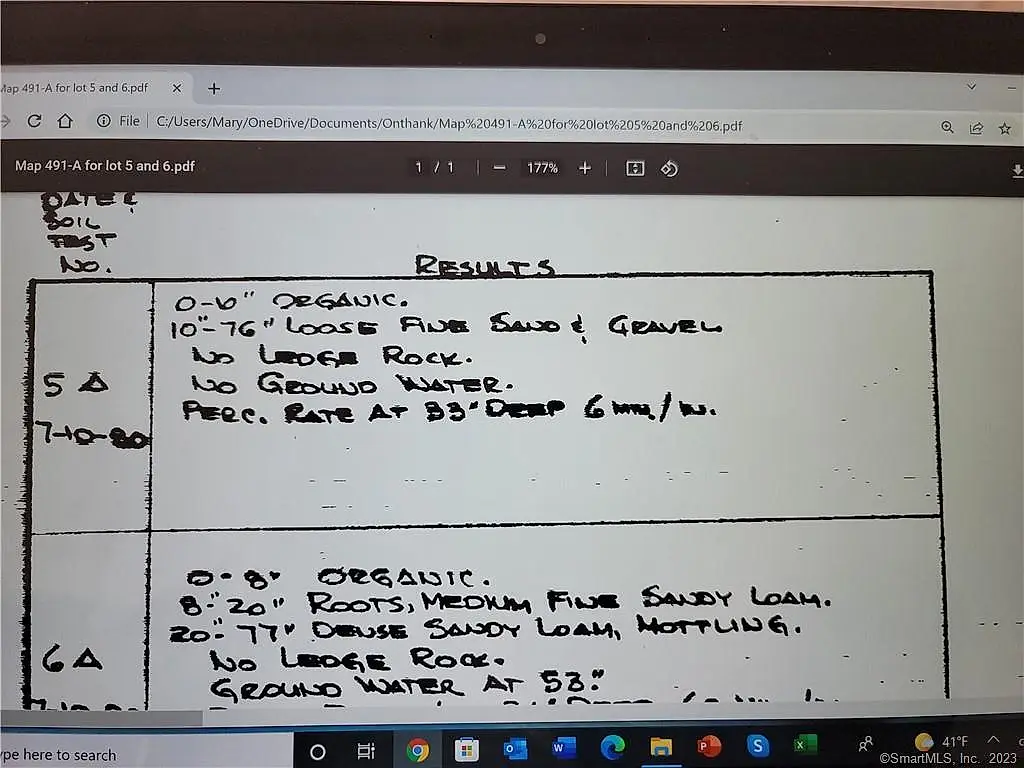 Map 491-A for lot 5 and 6.pdf
File C:/Users/Mary/OneDrive/Documents/Onthank/Map%20491-A%20for%20lot%205%20and%206.pdf
Map 491-A for lot 5 and 6.pdf 1 / 1 177%
DATE &
SOIL
TEST
NO.
RESULTS
0-6" ORGANIC.
10"-76" LOOSE FINE SAND & GRAVEL
NO LEDGE ROCK.
5 A
NO GROUND WATER.
PERC. RATE AT 33" DEEP 6 MIN./IN.
7-10-80
0-8" ORGANIC.
8"-20" ROOTS, MEDIUM FINE SANDY LOAM.
20"-77" DENSE SANDY LOAM, MOTTLING.
6 A
NO LEDGE ROCK.
GROUND WATER AT 53".
ype here to search
41°F
©SmartMLS, Inc. 2023